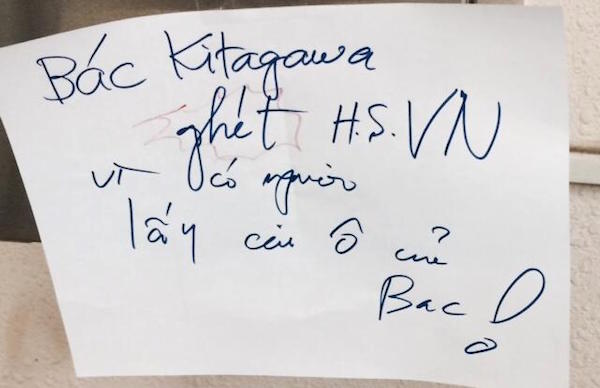 Bác Kitagawa
ghét H.S.VN
vì có người
lấy cái ô của
Bac!